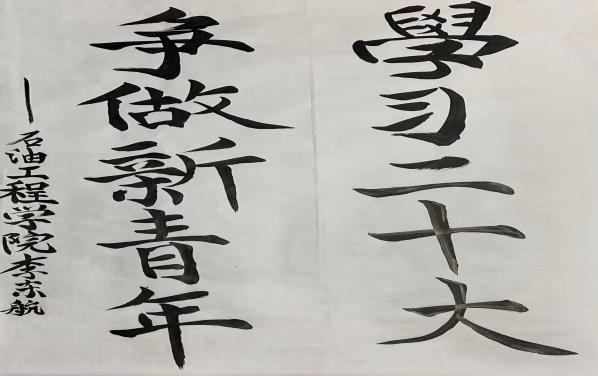 學习二十大
争做新青年
——石油工程学院李东航